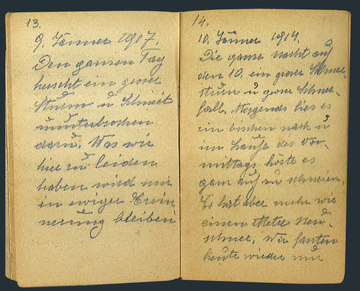 13.
9. Jänner 1917.
Den ganzen Tag
herrscht ein großer
Sturm u. schneit
ununterbrochen
daru. Was wir
hier zu leiden
haben wird mir
in ewiger Erin-
nerung bleiben
14.
10. Jänner 1917.
Die ganze Nacht auf
den 10. ein großer Schnee-
sturm u großer Schnee-
fall. Morgends lies es
ein bischen nach u
im Laufe des Vor-
mittags hörte es
ganz auf zu schneien.
Es liegt aber mehr wie
einen Meter Neu-
schnee. Wir
heute wieder nur